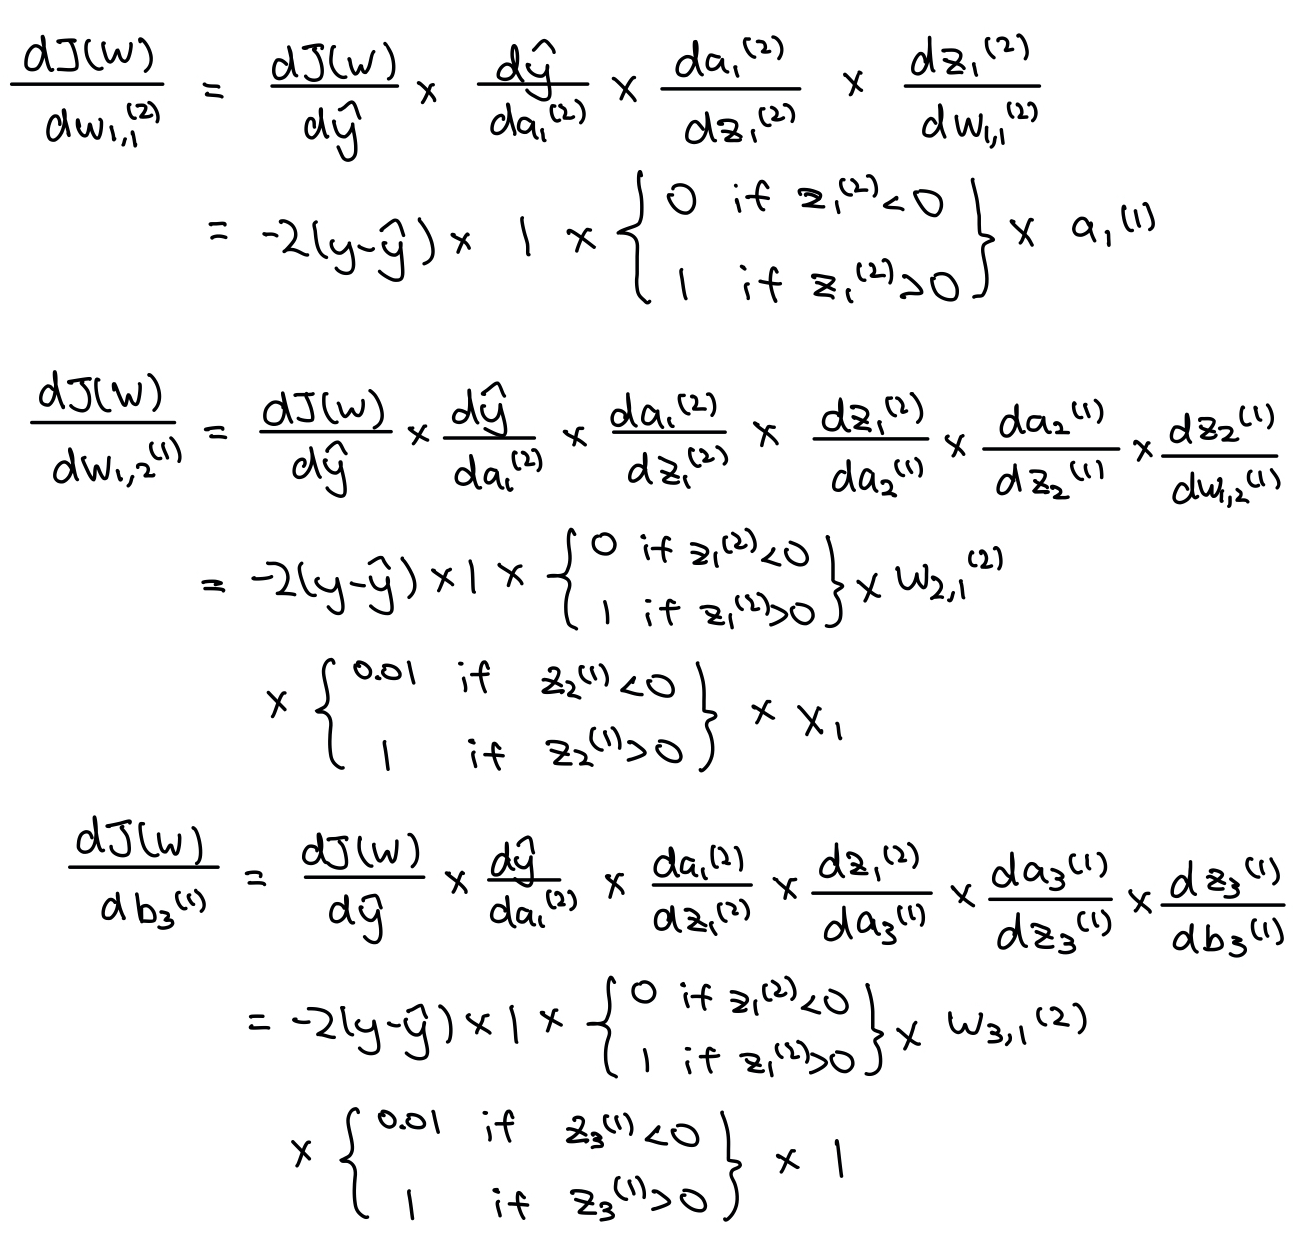 dJ(w)/dw₁,₁⁽²⁾ = dJ(w)/dŷ × dŷ/da₁⁽²⁾ × da₁⁽²⁾/dz₁⁽²⁾ × dz₁⁽²⁾/dw₁,₁⁽²⁾
= -2(y-ŷ) × 1 × { 0 if z₁⁽²⁾<0
1 if z₁⁽²⁾>0 } × a₁⁽¹⁾
dJ(w)/dw₁,₂⁽¹⁾ = dJ(w)/dŷ × dŷ/da₁⁽²⁾ × da₁⁽²⁾/dz₁⁽²⁾ × dz₁⁽²⁾/da₂⁽¹⁾ × da₂⁽¹⁾/dz₂⁽¹⁾ × dz₂⁽¹⁾/dw₁,₂⁽¹⁾
= -2(y-ŷ) × 1 × { 0 if z₁⁽²⁾<0
1 if z₁⁽²⁾>0 } × w₂,₁⁽²⁾
× { 0.01 if z₂⁽¹⁾<0
1 if z₂⁽¹⁾>0 } × x₁
dJ(w)/db₃⁽¹⁾ = dJ(w)/dŷ × dŷ/da₁⁽²⁾ × da₁⁽²⁾/dz₁⁽²⁾ × dz₁⁽²⁾/da₃⁽¹⁾ × da₃⁽¹⁾/dz₃⁽¹⁾ × dz₃⁽¹⁾/db₃⁽¹⁾
= -2(y-ŷ) × 1 × { 0 if z₁⁽²⁾<0
1 if z₁⁽²⁾>0 } × w₃,₁⁽²⁾
× { 0.01 if z₃⁽¹⁾<0
1 if z₃⁽¹⁾>0 } × 1